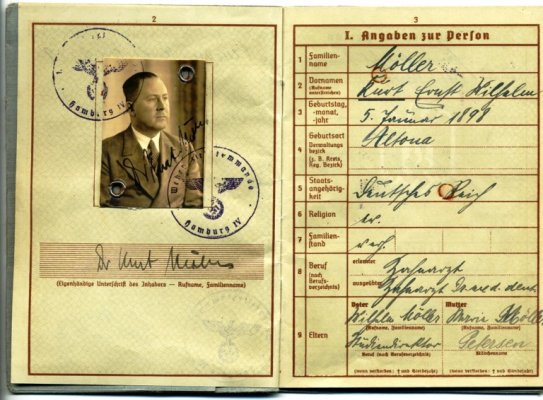 2
Hamburg IV
Wehrbezirkskommando
Hamburg IV
Dr Kurt Möller
(Eigenhändige Unterschrift des Inhabers — Rufname, Familienname)
3
I. Angaben zur Person
1 Familien-
name Möller
2 Vornamen
(Rufname
unterstreichen) Kurt Ernst Wilhelm
3 Geburtstag,
-monat,
-jahr 5. Januar 1898
4 Geburtsort
Verwaltungs-
bezirk
(z. B. Kreis,
Reg. Bezirk) Altona
5 Staats-
angehörig-
keit Deutsches Reich
6 Religion ev.
7 Familien-
stand verh.
8 Beruf
(nach
Berufs-
verzeichnis)
erlernter Zahnarzt
ausgeübter Zahnarzt Dr. med. dent.
9 Eltern
Vater Mutter
Wilhelm Möller Marie Möller
(Rufname, Familienname) (Rufname, Familienname)
Studiendirektor Petersen
Beruf (nach Berufsverzeichnis) Mädchenname
(wenn verstorben: † und Sterbejahr) (wenn verstorben: † und Sterbejahr)